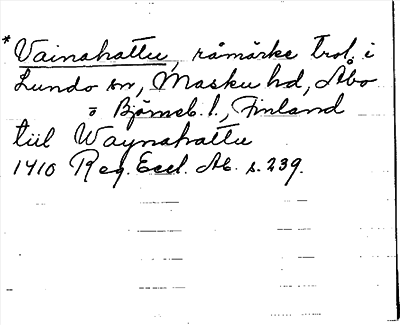 *Vainahattu, råmärke trol. i
Lundo sn, Masku hd, Åbo
o Björneb. l., Finland
tiil Waynahattu
1410 Reg. Eccl. Ab. s. 239.